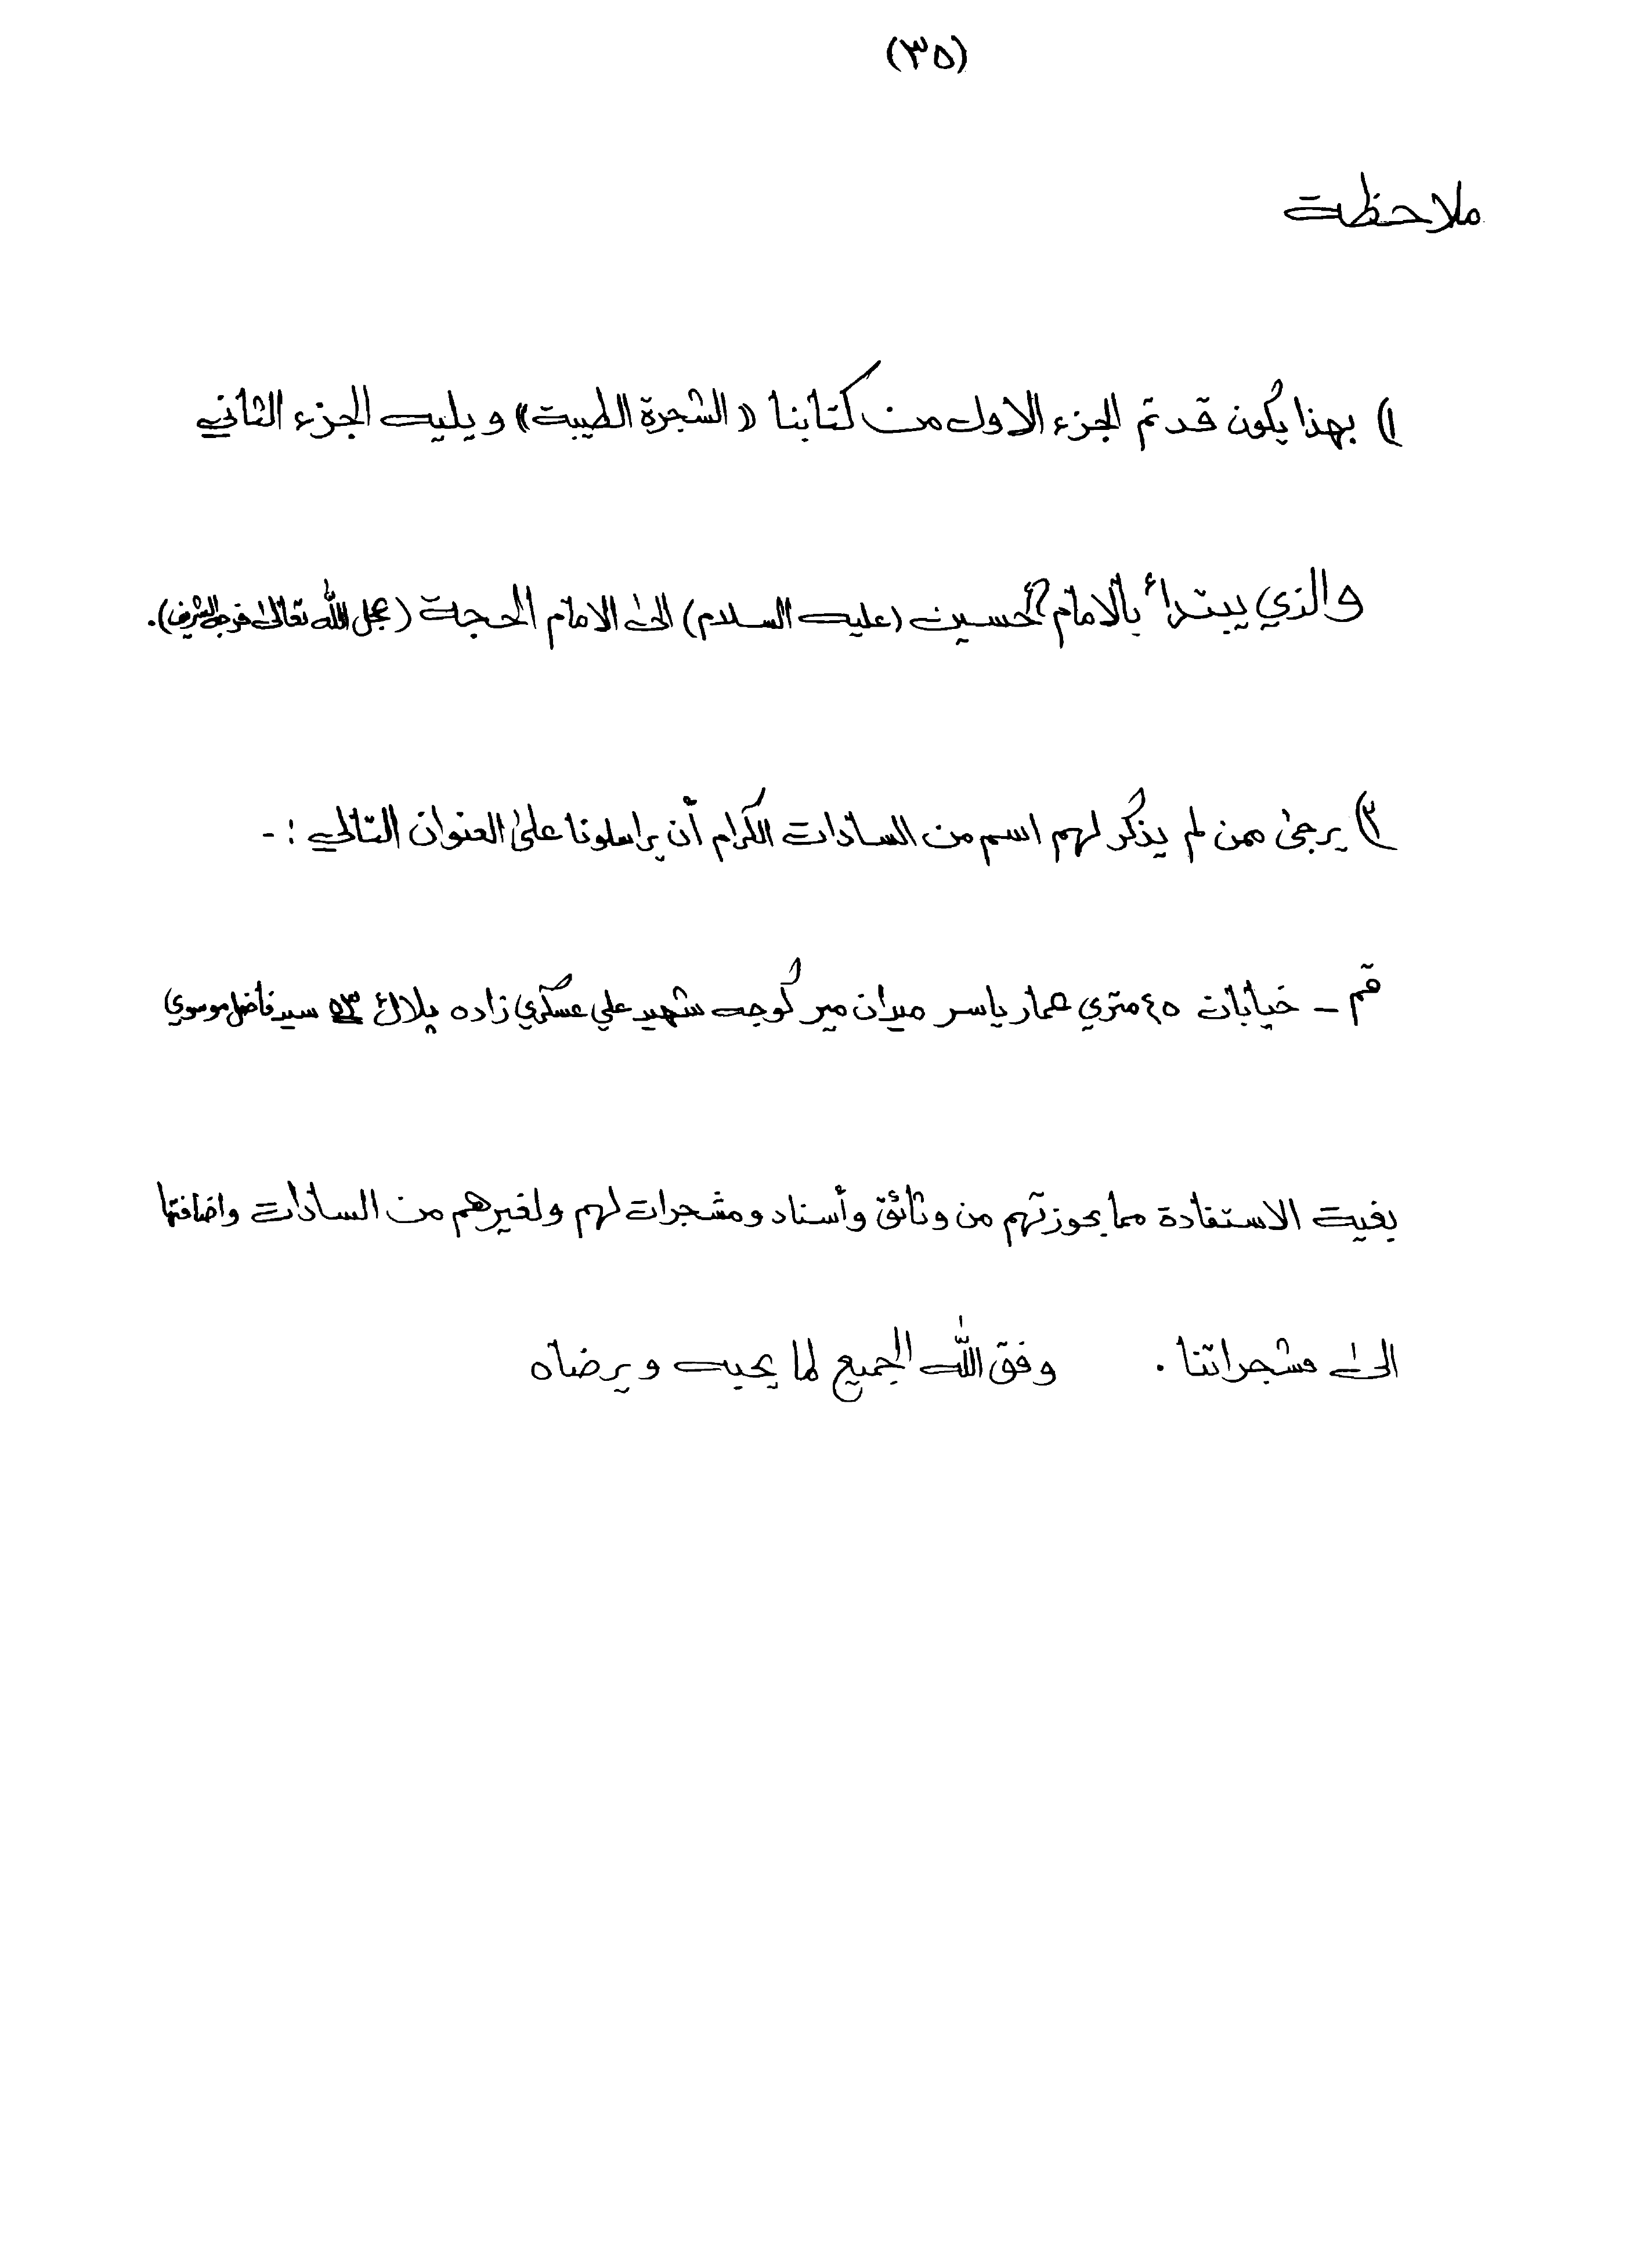 (٣٥)
ملاحظة
١) بهذا يكون قد تم الجزء الاول من كتابنا ((الشجرة الطيبة)) ويليه الجزء الثاني
والذي يبتدأ بالامام الحسين (عليه السلام) الى الامام الحجة (عجل الله تعالى فرجه الشريف).
٢) يرجى ممن لم يذكر لهم اسم من السادات الكرام أن يراسلونا على العنوان التالي :-
قم - خيابان ٤٥ متري عمار ياسر ميدان مير كوجه شهيد علي عسكري زاده پلاك ٥٣ سيد فاضل موسوي
بغية الاستفادة مما بحوزتهم من وثائق وأسناد ومشجرات لهم ولغيرهم من السادات واضافتها
الى مشجراتنا . وفق الله الجميع لما يحبه ويرضاه